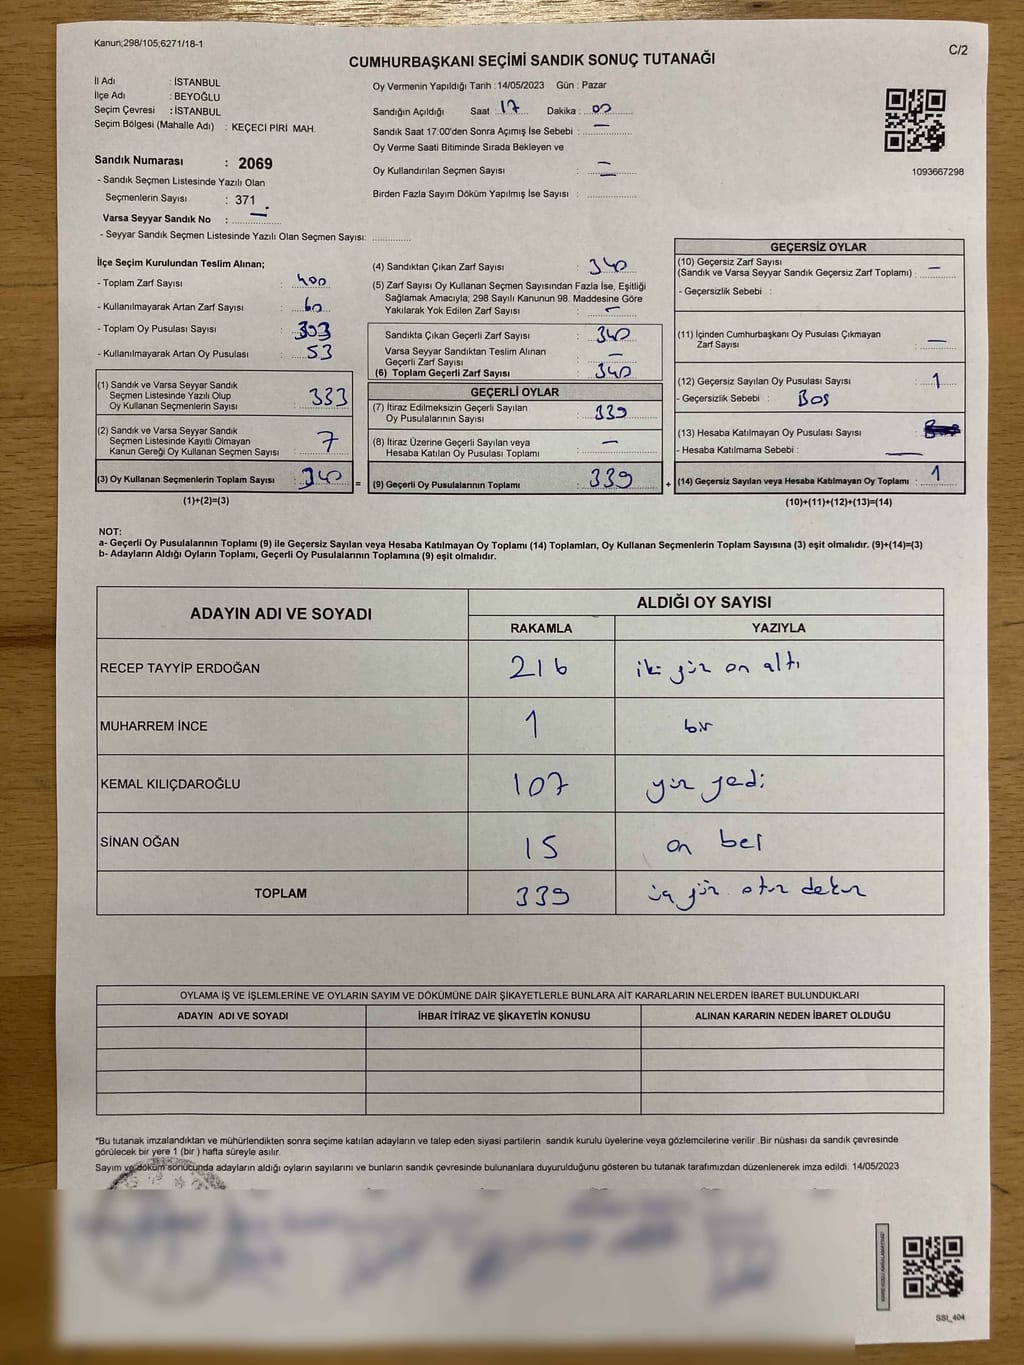 Kanun;298/105;6271/18-1
C/2
CUMHURBAŞKANI SEÇİMİ SANDIK SONUÇ TUTANAĞI
İl Adı : İSTANBUL
İlçe Adı : BEYOĞLU
Seçim Çevresi : İSTANBUL
Seçim Bölgesi (Mahalle Adı) : KEÇECİ PİRİ MAH.
Sandık Numarası : 2069
- Sandık Seçmen Listesinde Yazılı Olan
Seçmenlerin Sayısı : 371
Varsa Seyyar Sandık No : —
- Seyyar Sandık Seçmen Listesinde Yazılı Olan Seçmen Sayısı:
Oy Vermenin Yapıldığı Tarih :14/05/2023 Gün : Pazar
Sandığın Açıldığı Saat 17 Dakika : 00
Sandık Saat 17:00'den Sonra Açımış İse Sebebi : —
Oy Verme Saati Bitiminde Sırada Bekleyen ve
Oy Kullandırılan Seçmen Sayısı : —
Birden Fazla Sayım Döküm Yapılmış İse Sayısı :
1093667298
İlçe Seçim Kurulundan Teslim Alınan;
- Toplam Zarf Sayısı : 400
- Kullanılmayarak Artan Zarf Sayısı : 60
- Toplam Oy Pusulası Sayısı : 393
- Kullanılmayarak Artan Oy Pusulası : 53
(1) Sandık ve Varsa Seyyar Sandık
Seçmen Listesinde Yazılı Olup
Oy Kullanan Seçmenlerin Sayısı : 333
(2) Sandık ve Varsa Seyyar Sandık
Seçmen Listesinde Kayıtlı Olmayan
Kanun Gereği Oy Kullanan Seçmen Sayısı : 7
(3) Oy Kullanan Seçmenlerin Toplam Sayısı : 340 =
(1)+(2)=(3)
(4) Sandıktan Çıkan Zarf Sayısı : 340
(5) Zarf Sayısı Oy Kullanan Seçmen Sayısından Fazla İse, Eşitliği
Sağlamak Amacıyla; 298 Sayılı Kanunun 98. Maddesine Göre
Yakılarak Yok Edilen Zarf Sayısı : —
Sandıkta Çıkan Geçerli Zarf Sayısı : 340
Varsa Seyyar Sandıktan Teslim Alınan
Geçerli Zarf Sayısı : —
(6) Toplam Geçerli Zarf Sayısı : 340
GEÇERLİ OYLAR
(7) İtiraz Edilmeksizin Geçerli Sayılan
Oy Pusulalarının Sayısı : 339
(8) İtiraz Üzerine Geçerli Sayılan veya
Hesaba Katılan Oy Pusulası Toplamı : —
(9) Geçerli Oy Pusulalarının Toplamı : 339 +
GEÇERSİZ OYLAR
(10) Geçersiz Zarf Sayısı
(Sandık ve Varsa Seyyar Sandık Geçersiz Zarf Toplamı) : —
- Geçersizlik Sebebi :
(11) İçinden Cumhurbaşkanı Oy Pusulası Çıkmayan
Zarf Sayısı : —
(12) Geçersiz Sayılan Oy Pusulası Sayısı : 1
- Geçersizlik Sebebi : BOŞ
(13) Hesaba Katılmayan Oy Pusulası Sayısı :
- Hesaba Katılmama Sebebi : —
(14) Geçersiz Sayılan veya Hesaba Katılmayan Oy Toplamı : 1
(10)+(11)+(12)+(13)=(14)
NOT:
a- Geçerli Oy Pusulalarının Toplamı (9) ile Geçersiz Sayılan veya Hesaba Katılmayan Oy Toplamı (14) Toplamları, Oy Kullanan Seçmenlerin Toplam Sayısına (3) eşit olmalıdır. (9)+(14)=(3)
b- Adayların Aldığı Oyların Toplamı, Geçerli Oy Pusulalarının Toplamına (9) eşit olmalıdır.
ADAYIN ADI VE SOYADI ALDIĞI OY SAYISI
RAKAMLA YAZIYLA
RECEP TAYYİP ERDOĞAN 216 iki yüz on altı
MUHARREM İNCE 1 bir
KEMAL KILIÇDAROĞLU 107 yüz yedi
SİNAN OĞAN 15 on beş
TOPLAM 339 üç yüz otuz dokuz
OYLAMA İŞ VE İŞLEMLERİNE VE OYLARIN SAYIM VE DÖKÜMÜNE DAİR ŞİKAYETLERLE BUNLARA AİT KARARLARIN NELERDEN İBARET BULUNDUKLARI
ADAYIN ADI VE SOYADI İHBAR İTİRAZ VE ŞİKAYETİN KONUSU ALINAN KARARIN NEDEN İBARET OLDUĞU
*Bu tutanak imzalandıktan ve mühürlendikten sonra seçime katılan adayların ve talep eden siyasi partilerin sandık kurulu üyelerine veya gözlemcilerine verilir .Bir nüshası da sandık çevresinde
görülecek bir yere 1 (bir ) hafta süreyle asılır.
Sayım ve döküm sonucunda adayların aldığı oyların sayılarını ve bunların sandık çevresinde bulunanlara duyurulduğunu gösteren bu tutanak tarafımızdan düzenlenerek imza edildi. 14/05/2023
SSI_404